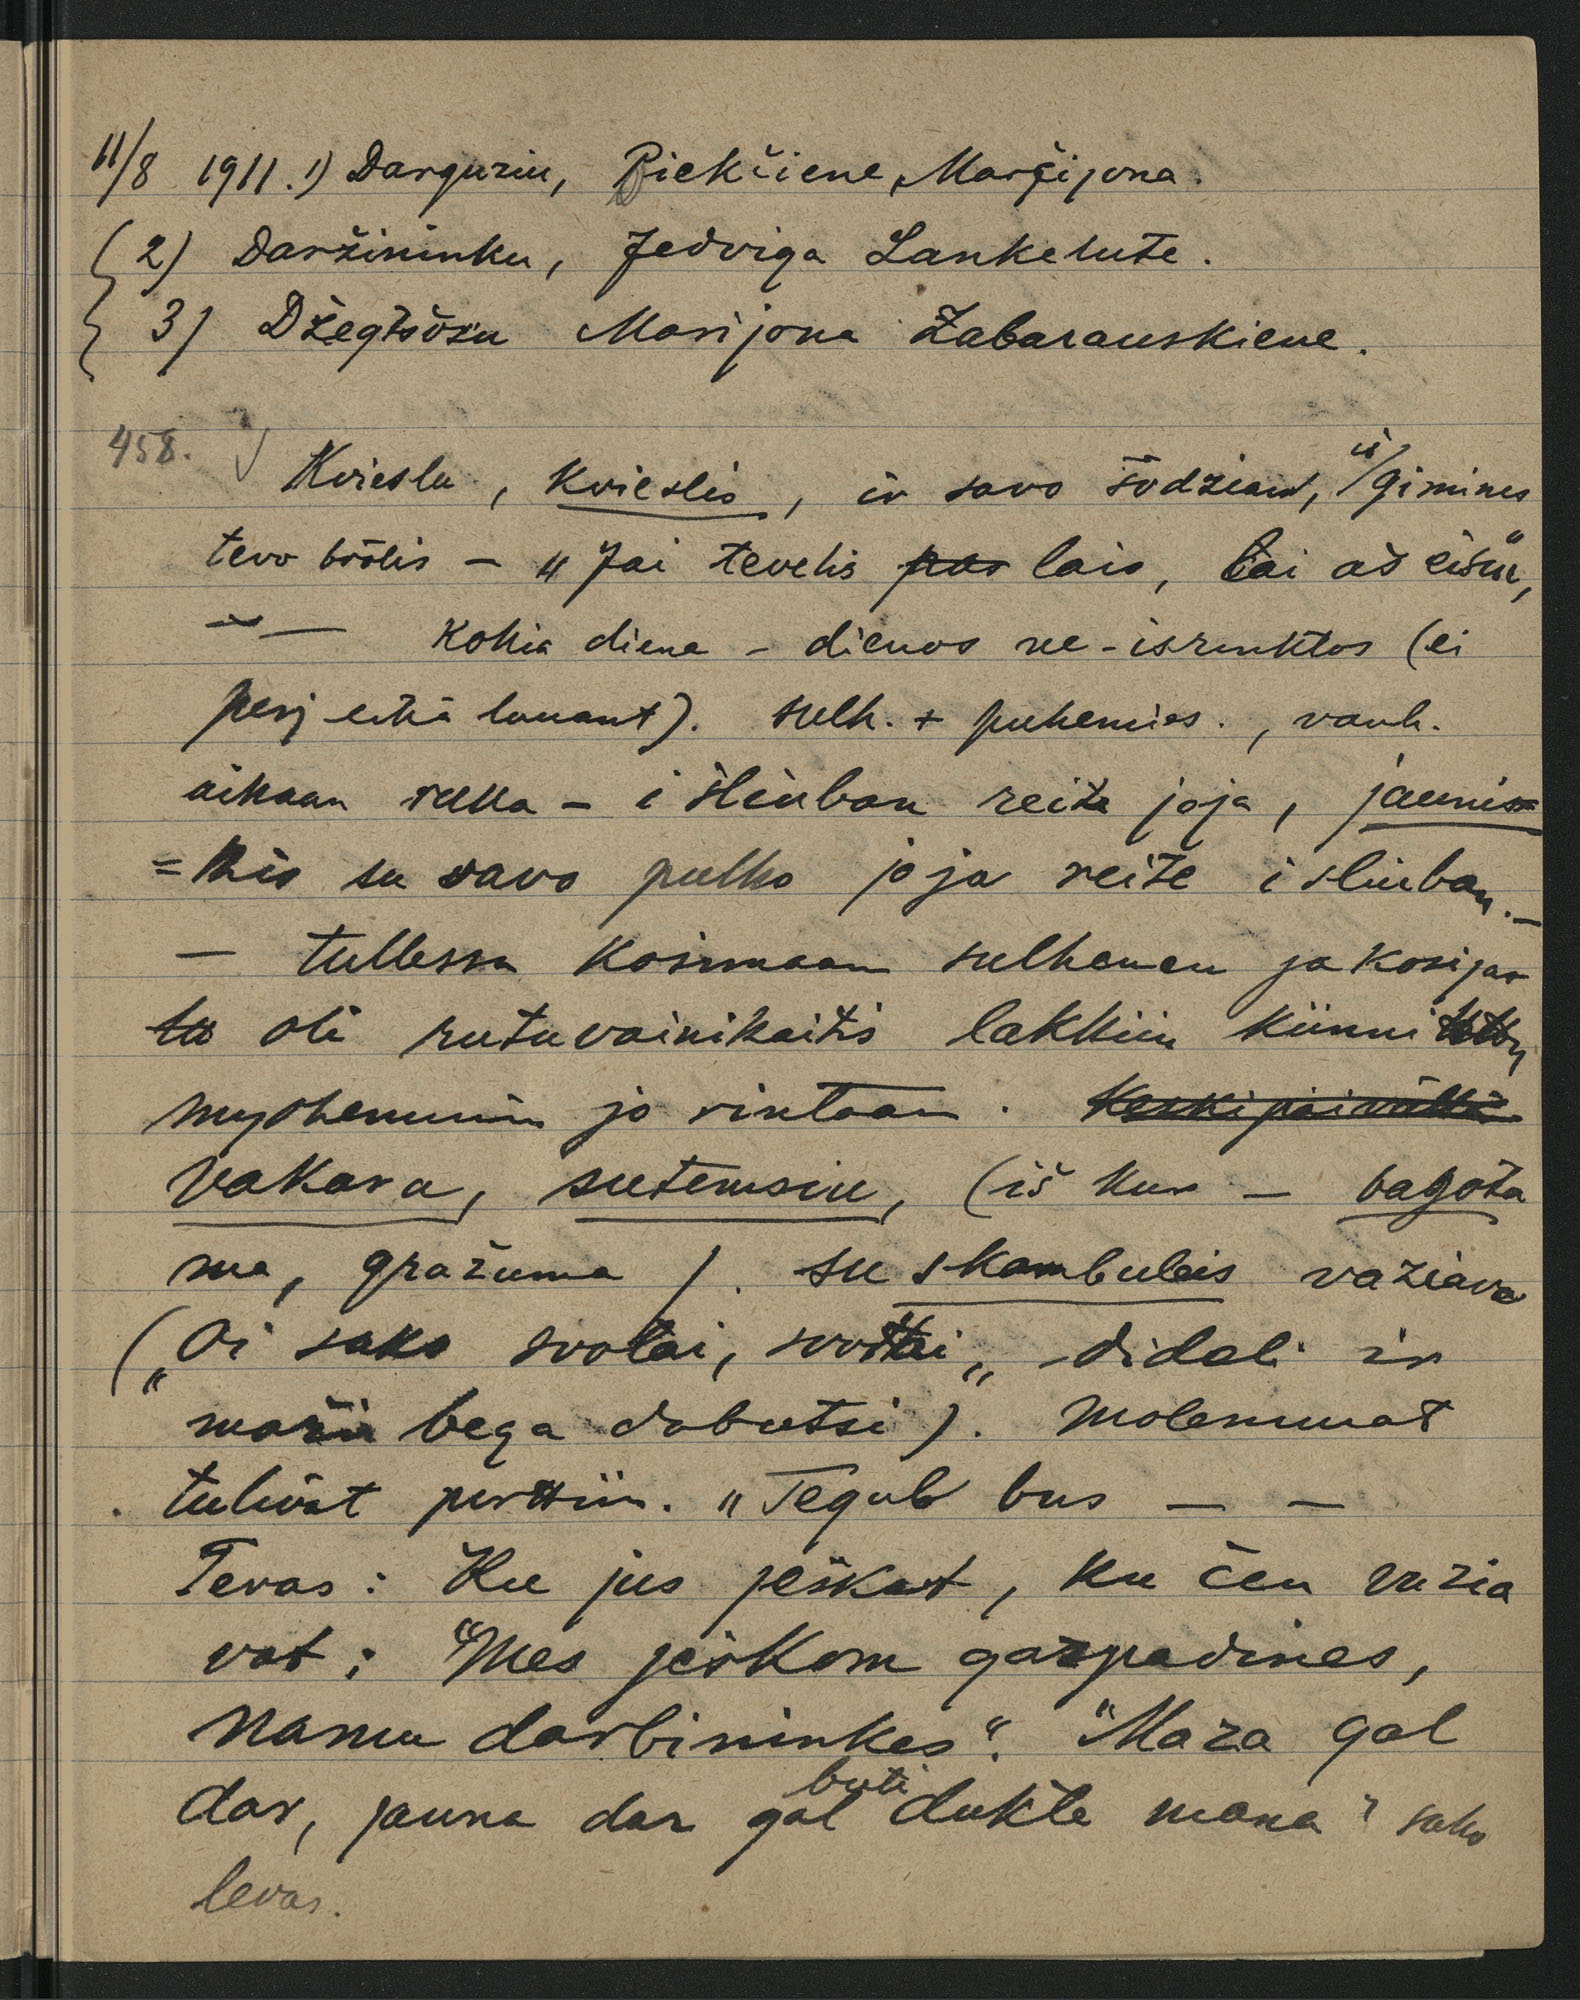 11/8 1911. 1) Darguziu, Piekčiene, Marijona.
2) Daržininku, Jedviga Lankelute.
3) Marijona Zabarauskiene.
458. Krieslu, krieslis, ir savo šodžiaus, iš gimines
tevo brölis – „Jai tevelis leis, tai aš eisu",
– Kokia diena – dienos ne-isrinktos (ei
perjeitä lauant). sulh. + puhemies., vanh.
aikaan rekka – i šliuban reita joja, jaunisa
=kis su savo pulko joja reite i sliuban. –
– tullessa kosimaan sulhemen ja kosijas
oli rutuvainikaitis lakkiin kiinnitetty
myöhemmin jo rintaan.
Vakara, sutemsiu, (iš kur – bagota
ma, gražuma). su skambuleis vaziava
(„Oi sako svotai, svotai„ dideli ir
maži bega dabotsi). Molemmat
tulivat perttiin. „Tegul bus – –
Tevas: Ku jus ješkot, ku čen vazia
vot: "Mes ješkom gaspadines,
namu darbininkes". "Maza gal
dar, jauna dar gal buti dukte mana" sako
tevas.